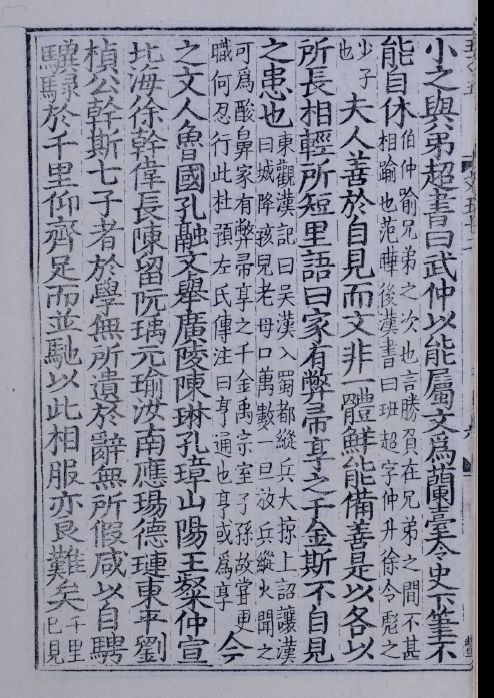 小之與弟超書曰武仲以能屬文為蘭臺令史下筆不
能自休
伯仲喻兄弟之次也言勝負在兄弟之間不甚
相踰也范曄後漢書曰班超字仲升徐令彪之
少子
也
夫人善於自見而文非一體鮮能備善是以各以
所長相輕所短里語曰家有弊帚享之千金斯不自見
之患也
東觀漢記曰吳漢入蜀都縱兵大掠上詔讓漢
曰城降孩兒老母口萬數一旦放兵縱火聞之
可為酸鼻家有弊帚享之千金禹宗室子孫故嘗更
職何忍行此杜預左氏傳注曰亨通也亨或為享
今
之文人魯國孔融文舉廣陵陳琳孔璋山陽王粲仲宣
北海徐幹偉長陳留阮瑀元瑜汝南應瑒德璉東平劉
楨公幹斯七子者於學無所遺於辭無所假咸以自騁
驥騄於千里仰齊足而並馳以此相服亦良難矣
千里
已見